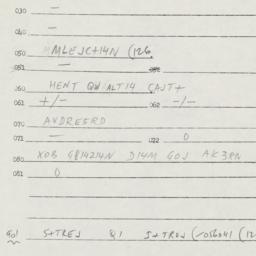 030 —
040 —
050 MLEJC+14N (126
051 —
060 MENT QW/ALT14 CAJT+
061 +/- 062 -/-
070 AVDRESRD
071 — 072 0
080 XOB G8142I4N D14M GOJ AK3RN
081 0
S+TREJ &1 J+TROJ (-056041 (12